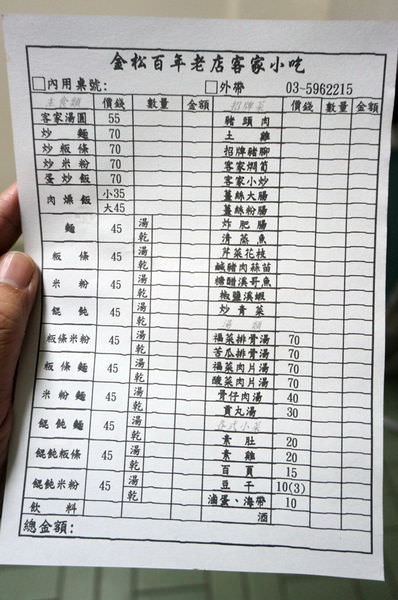 金松百年老店客家小吃
□內用桌號: □外帶 03-5962215
主食類 價錢 數量 金額 招牌菜 價錢 數量 金額
客家湯圓 55 豬頭肉
炒麵 70 土雞
炒粄條 70 招牌豬腳
炒米粉 70 客家燜筍
蛋炒飯 70 客家小炒
肉燥飯 小35 薑絲大腸
大45 薑絲粉腸
麵 45 湯 炸肥腸
乾 清蒸魚
粄條 45 湯 芹菜花枝
乾 鹹豬肉蒜苗
米粉 45 湯 糖醋溪哥魚
乾 椒鹽溪蝦
餛飩 45 湯 炒青菜
乾 湯類
粄條米粉 45 湯 福菜排骨湯 70
乾 苦瓜排骨湯 70
粄條麵 45 湯 福菜肉片湯 70
乾 酸菜肉片湯 70
米粉麵 45 湯 骨仔肉湯 40
乾 貢丸湯 30
餛飩麵 45 湯 各式小菜
乾 素肚 20
餛飩粄條 45 湯 素雞 20
乾 百頁 15
餛飩米粉 45 湯 豆干 10(3)
乾 滷蛋、海帶 10
飲料 酒
總金額: